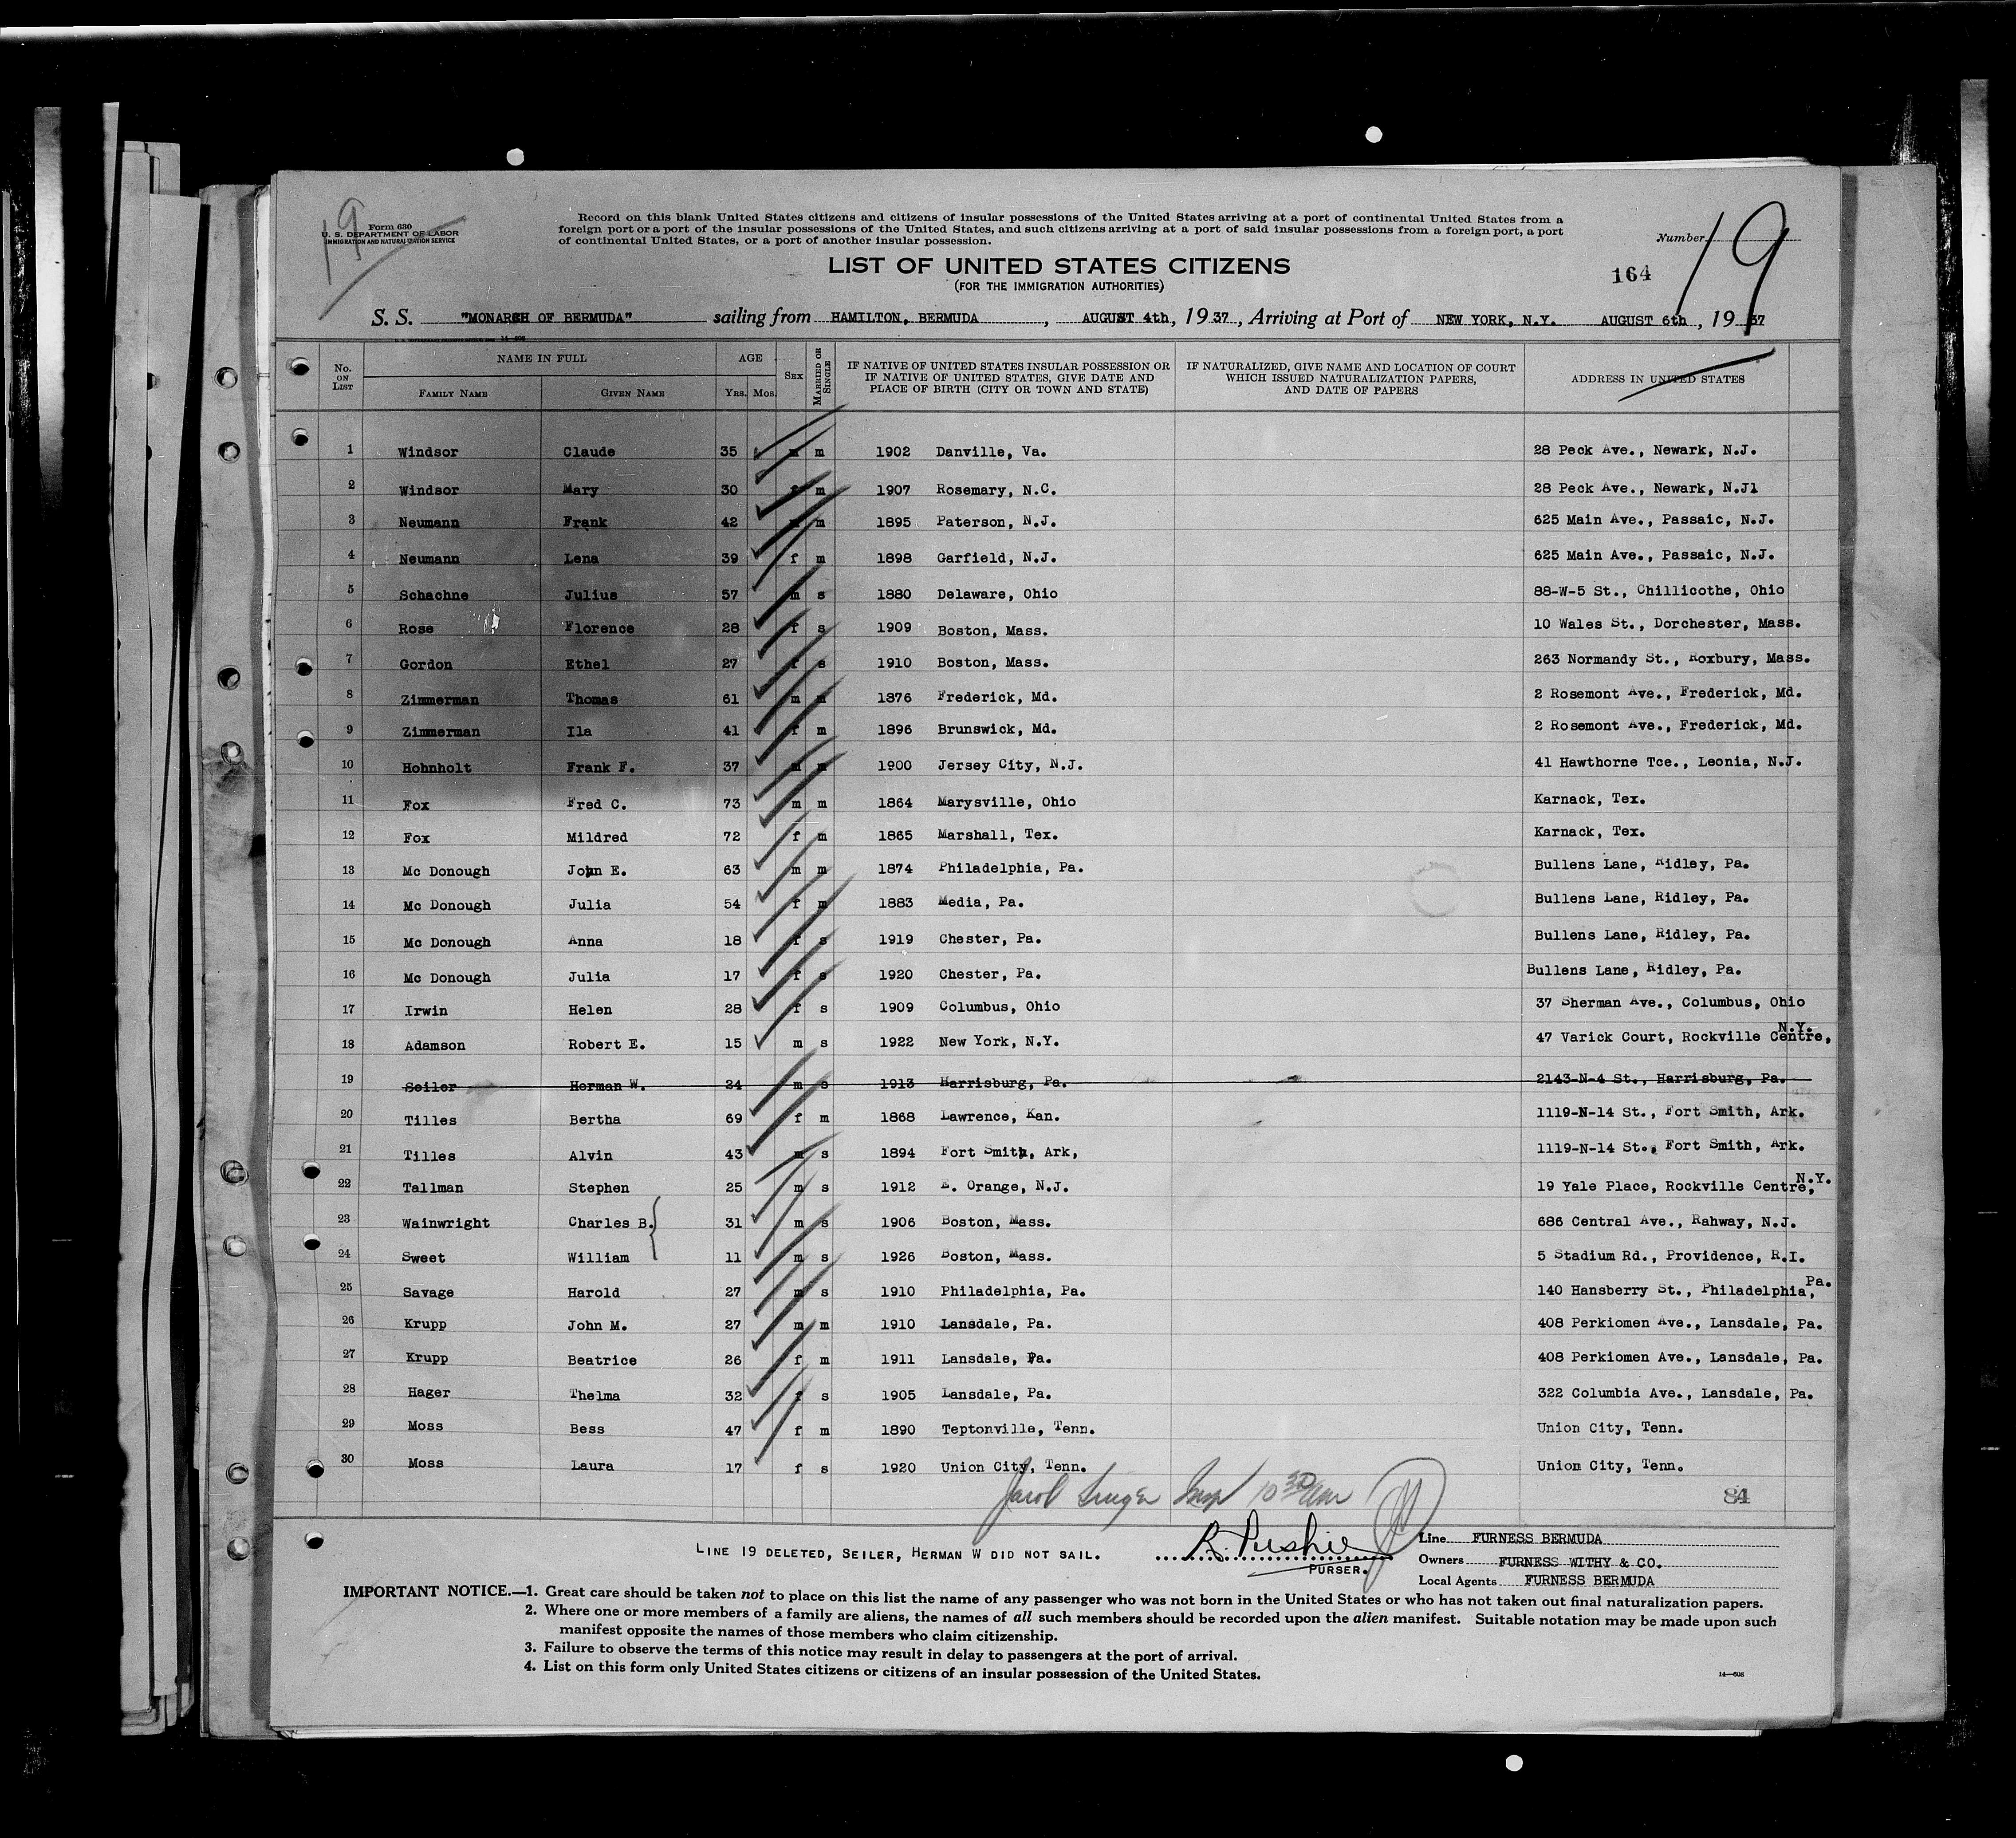 19
Form 630
U. S. DEPARTMENT OF LABOR
IMMIGRATION AND NATURALIZATION SERVICE
Record on this blank United States citizens and citizens of insular possessions of the United States arriving at a port of continental United States from a
foreign port or a port of the insular possessions of the United States, and such citizens arriving at a port of said insular possessions from a foreign port, a port
of continental United States, or a port of another insular possession.
Number 19
164
LIST OF UNITED STATES CITIZENS
(FOR THE IMMIGRATION AUTHORITIES)
S. S. "MONARCH OF BERMUDA" sailing from HAMILTON, BERMUDA, AUGUST 4th, 1937, Arriving at Port of NEW YORK, N.Y. AUGUST 6th, 1937
No. ON LIST NAME IN FULL FAMILY NAME GIVEN NAME AGE YRS. MOS. SEX MARRIED OR SINGLE IF NATIVE OF UNITED STATES INSULAR POSSESSION OR IF NATIVE OF UNITED STATES, GIVE DATE AND PLACE OF BIRTH (CITY OR TOWN AND STATE) IF NATURALIZED, GIVE NAME AND LOCATION OF COURT WHICH ISSUED NATURALIZATION PAPERS, AND DATE OF PAPERS ADDRESS IN UNITED STATES
1 Windsor Claude 35 m m 1902 Danville, Va. 28 Peck Ave., Newark, N.J.
2 Windsor Mary 30 f m 1907 Rosemary, N.C. 28 Peck Ave., Newark, N.J1
3 Neumann Frank 42 m m 1895 Paterson, N.J. 625 Main Ave., Passaic, N.J.
4 Neumann Lena 39 f m 1898 Garfield, N.J. 625 Main Ave., Passaic, N.J.
5 Schachne Julius 57 m s 1880 Delaware, Ohio 88-W-5 St., Chillicothe, Ohio
6 Rose Florence 28 f s 1909 Boston, Mass. 10 Wales St., Dorchester, Mass.
7 Gordon Ethel 27 f s 1910 Boston, Mass. 263 Normandy St., Roxbury, Mass.
8 Zimmerman Thomas 61 m m 1876 Frederick, Md. 2 Rosemont Ave., Frederick, Md.
9 Zimmerman Ila 41 f m 1896 Brunswick, Md. 2 Rosemont Ave., Frederick, Md.
10 Hohnholt Frank F. 37 m m 1900 Jersey City, N.J. 41 Hawthorne Tce., Leonia, N.J.
11 Fox Fred C. 73 m m 1864 Marysville, Ohio Karnack, Tex.
12 Fox Mildred 72 f m 1865 Marshall, Tex. Karnack, Tex.
13 Mc Donough John E. 63 m m 1874 Philadelphia, Pa. Bullens Lane, Ridley, Pa.
14 Mc Donough Julia 54 f m 1883 Media, Pa. Bullens Lane, Ridley, Pa.
15 Mc Donough Anna 18 f s 1919 Chester, Pa. Bullens Lane, Ridley, Pa.
16 Mc Donough Julia 17 f s 1920 Chester, Pa. Bullens Lane, Ridley, Pa.
17 Irwin Helen 28 f s 1909 Columbus, Ohio 37 Sherman Ave., Columbus, Ohio
18 Adamson Robert E. 15 m s 1922 New York, N.Y. 47 Varick Court, Rockville Centre, N.Y.
19 Seiler Herman W. 24 m s 1913 Harrisburg, Pa. 2143-N-4 St., Harrisburg, Pa.
20 Tilles Bertha 69 f m 1868 Lawrence, Kan. 1119-N-14 St., Fort Smith, Ark.
21 Tilles Alvin 43 m s 1894 Fort Smith, Ark, 1119-N-14 St., Fort Smith, Ark.
22 Tallman Stephen 25 m s 1912 E. Orange, N.J. 19 Yale Place, Rockville Centre, N.Y.
23 Wainwright Charles B. 31 m s 1906 Boston, Mass. 686 Central Ave., Rahway, N.J.
24 Sweet William 11 m s 1926 Boston, Mass. 5 Stadium Rd., Providence, R.I.
25 Savage Harold 27 m s 1910 Philadelphia, Pa. 140 Hansberry St., Philadelphia, Pa.
26 Krupp John M. 27 m m 1910 Lansdale, Pa. 408 Perkiomen Ave., Lansdale, Pa.
27 Krupp Beatrice 26 f m 1911 Lansdale, Pa. 408 Perkiomen Ave., Lansdale, Pa.
28 Hager Thelma 32 f s 1905 Lansdale, Pa. 322 Columbia Ave., Lansdale, Pa.
29 Moss Bess 47 f m 1890 Teptonville, Tenn. Union City, Tenn.
30 Moss Laura 17 f s 1920 Union City, Tenn. Union City, Tenn.
Insp 10 30 am
84
LINE 19 DELETED, SEILER, HERMAN W DID NOT SAIL.
PURSER.
Line FURNESS BERMUDA
Owners FURNESS WITHY & CO.
Local Agents FURNESS BERMUDA
IMPORTANT NOTICE.—1. Great care should be taken not to place on this list the name of any passenger who was not born in the United States or who has not taken out final naturalization papers.
2. Where one or more members of a family are aliens, the names of all such members should be recorded upon the alien manifest. Suitable notation may be made upon such
manifest opposite the names of those members who claim citizenship.
3. Failure to observe the terms of this notice may result in delay to passengers at the port of arrival.
4. List on this form only United States citizens or citizens of an insular possession of the United States.
14—608